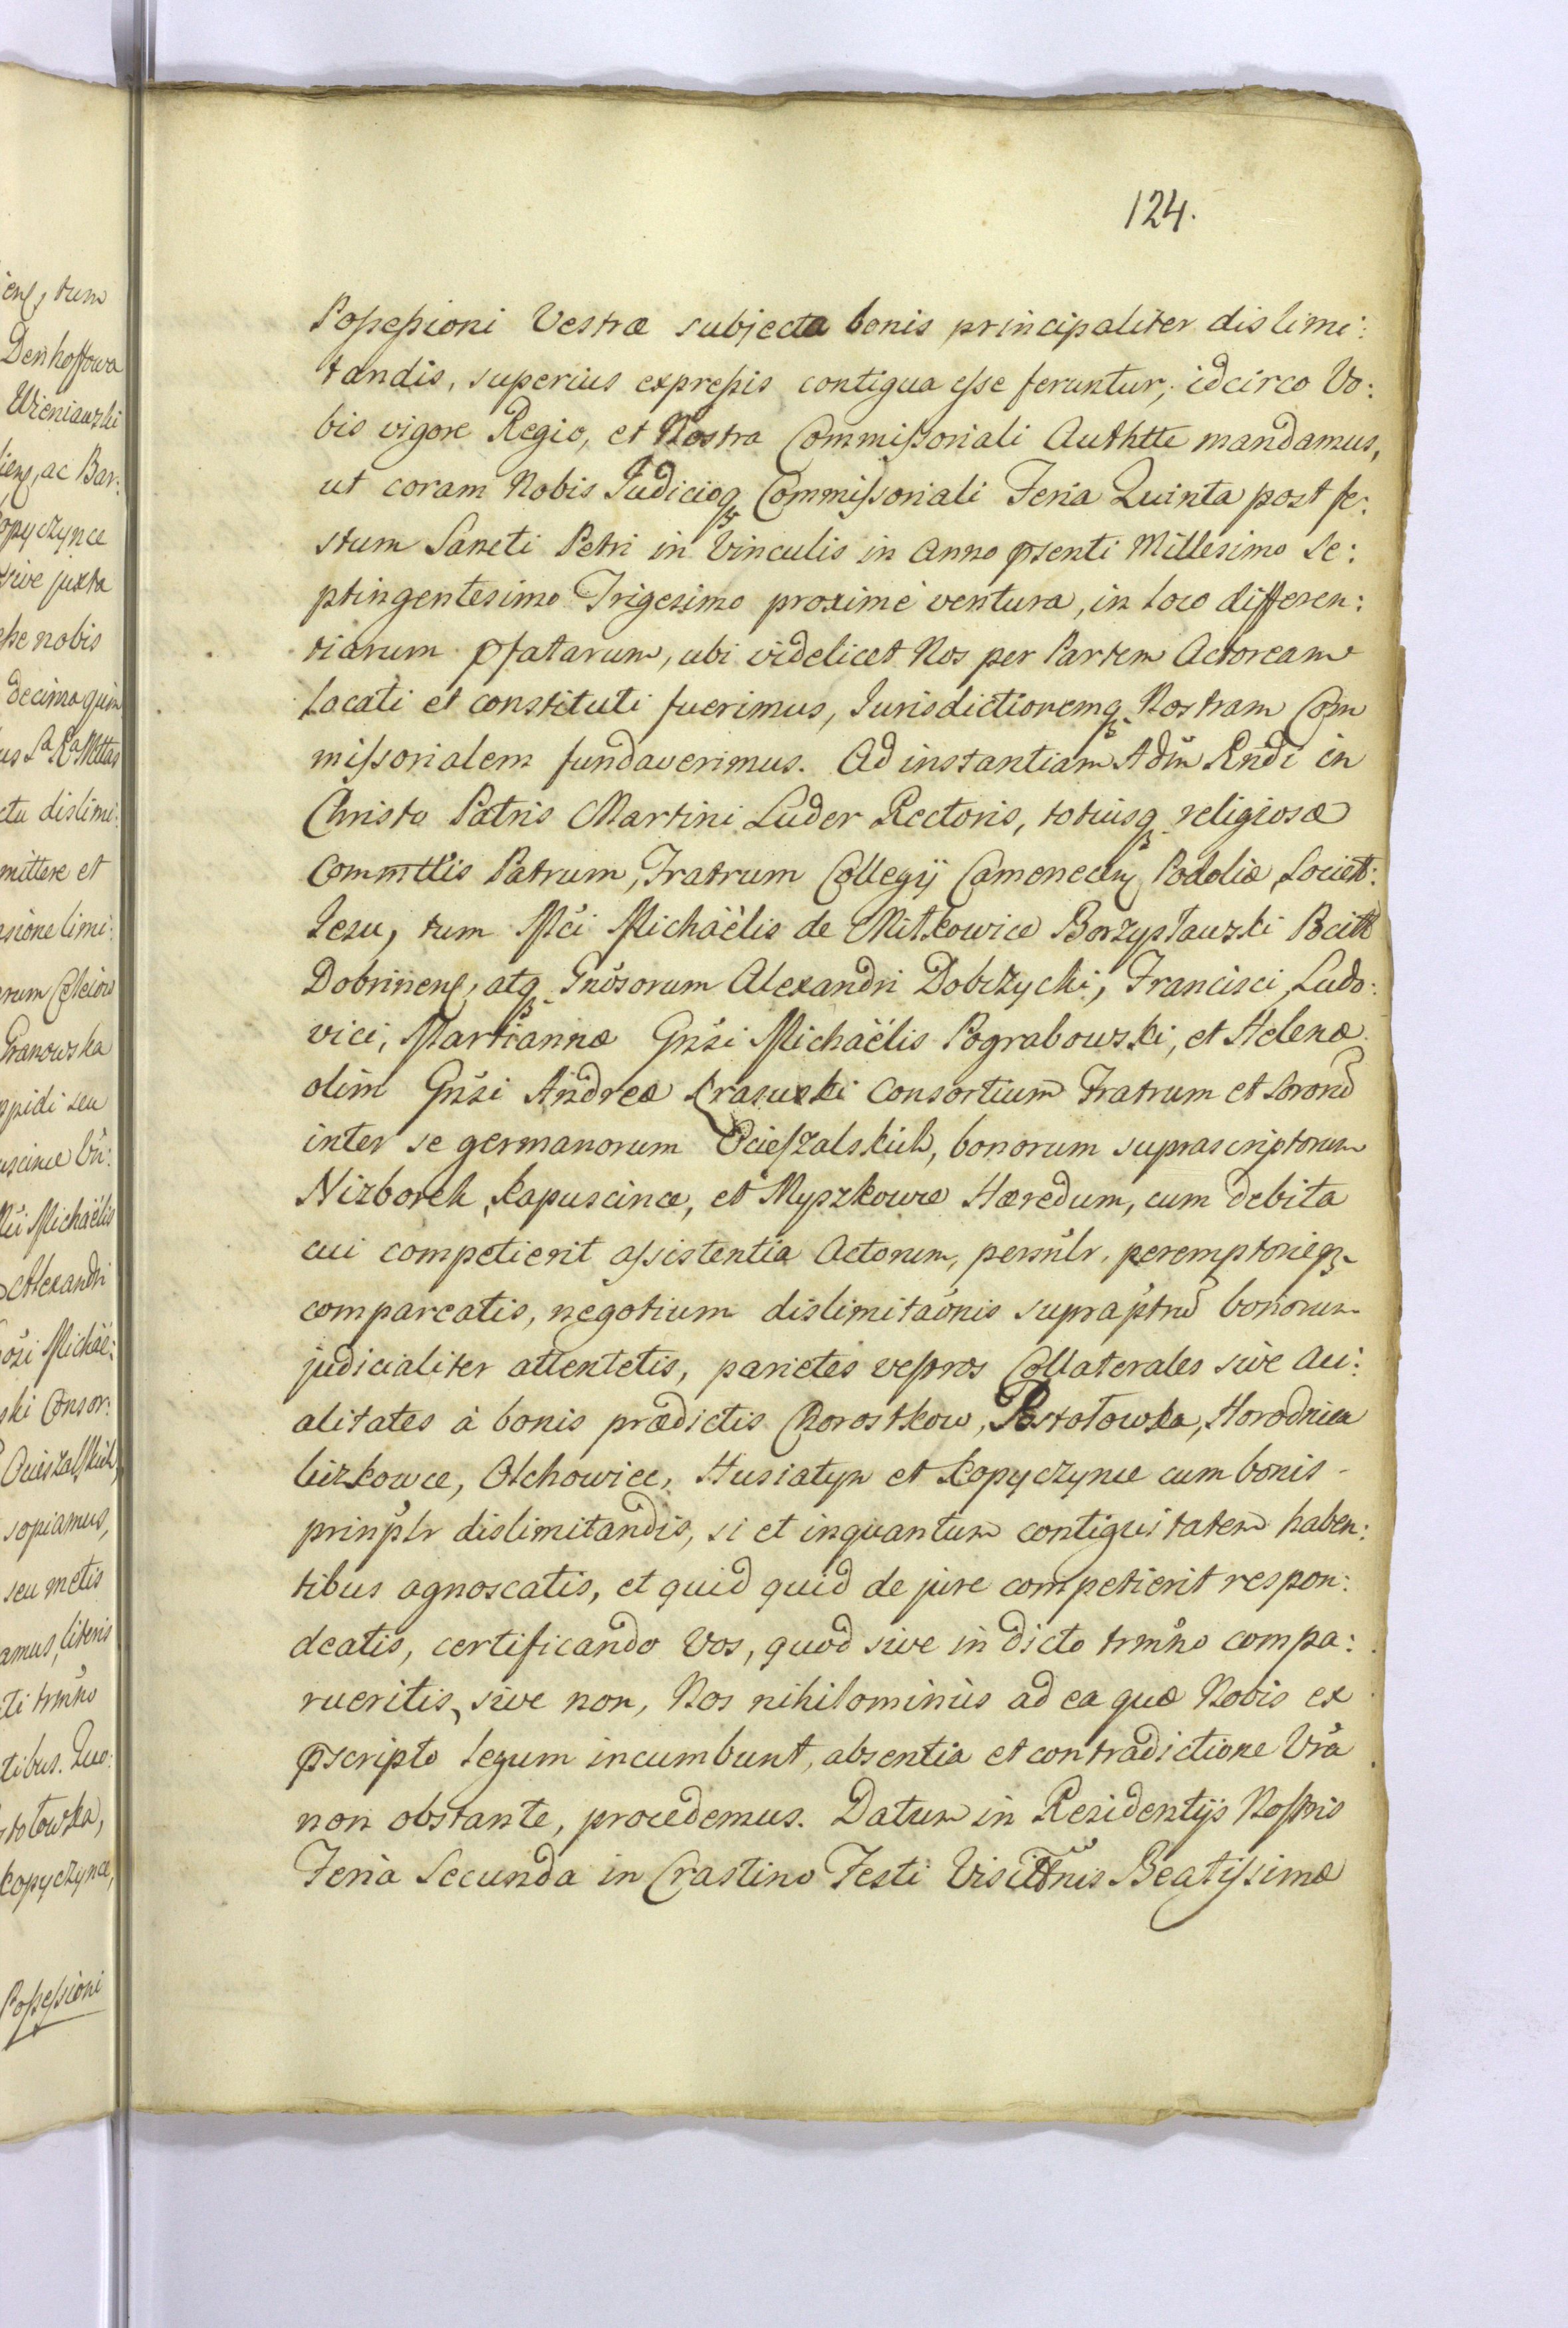 124.
Possessioni Vestræ subjecta bonis principaliter dislimi:
tandis, superius expressis contigua esse feruntur, idcirco Vo:
bis vigore Regio, et Nostra Commissoriali Authtte mandamus,
ut coram Nobis Judicioq Commissoriali Feria Quinta post fe:
stum Sancti Petri in Vinculis in Anno psenti Millesimo Se:
ptingentesimo Trigesimo proxime ventura, in loco differen:
tiarum pfatarum, ubi videlicet Nos per Partem Actoream
locati et constituti fuerimus, Jurisdictionemq Nostram Com
missorialem fundaverimus. Ad instantiam Adm Rndi in
Christo Patris Martini Luder Rectoris, totiusq religiosæ
Commttis Patrum, Fratrum Collegij Camenecen Podoliæ Societt:
Jesu, tum Mci Michäelis de Mitkowice Borzysławski
Dobrinens, atq Gnosorum Alexandri Dobrzycki, Francisci, Ludo:
vici, Martiannæ Gnsi Michäelis Pograbowski, et Helenæ
olim Gnsi Andreæ Krasuski Consortium Fratrum et Soronu
inter se germanorum Ocieszalskich, bonorum suprascriptorum
Nizborek, Kapuscince, et Myszkowce Hæredum, cum debita
cui competierit assistentia Actorum, personlr. peremptorieq
compareatis, negotium dislimitaonis supraptru bonorum
judicialiter attentetis, parietes vestros Collaterales sive Aci:
alitates à bonis prædictis Chorostkow, Postołowka, Horodnica
Liczkowce, Olchowiec, Husiatyn et Kopyczynce cum bonis -
prinplr dislimitandis, si et inquantum contiguitatem haben:
tibus agnoscatis, et quid quid de jure competierit respon:
deatis, certificando Vos, quod sive in dicto trmno compa:
rueritis, sive non, Nos nihilominus ad ea quæ Nobis ex
pscripto legum incumbunt, absentia et contradictione Vra
non obstante, procedemus. Datum in Residentijs Nostris
Feria Secunda in Crastino Festi Visittnis Beatissimæ
ens, tum
Denhoffowa
Wieniawski
iens, ac Bar:
opyczynce
sive juxta
esse nobis
decima quin
us Sa Ra Mttas
ctu dislimi:
mittere et
nsione limi:
Granowska
ppidi seu
Mci Michäelis
Alexandri
osi Michäe:
ski Consor:
Ocieszalskich,
sopiamus,
seu metis
amus, literis
ti trmno
tibus. Quo:
stołowka,
Kopyczynce,
Possessioni